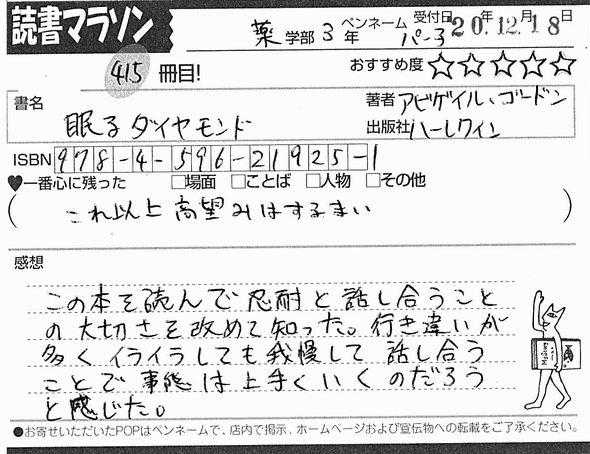 読書マラソン
薬学部 3年 ペンネーム パー子 受付日 20年12月18日
415冊目!
おすすめ度☆☆☆☆☆
書名 眠るダイヤモンド
著者 アビゲイル、ゴードン
出版社 ハーレクイン
ISBN 978-4-596-21925-1
♥一番心に残った □場面 □ことば □人物 □その他
(これ以上高望みはするまい)
感想
この本を読んで忍耐と話し合うこと
の大切さを改めて知った。行き違いが
多くイライラしても我慢して話し合う
ことで事態は上手くいくのだろう
と感じた。
●お寄せいただいたPOPはペンネームで、店内で掲示、ホームページおよび宣伝物への転載をご了承ください。